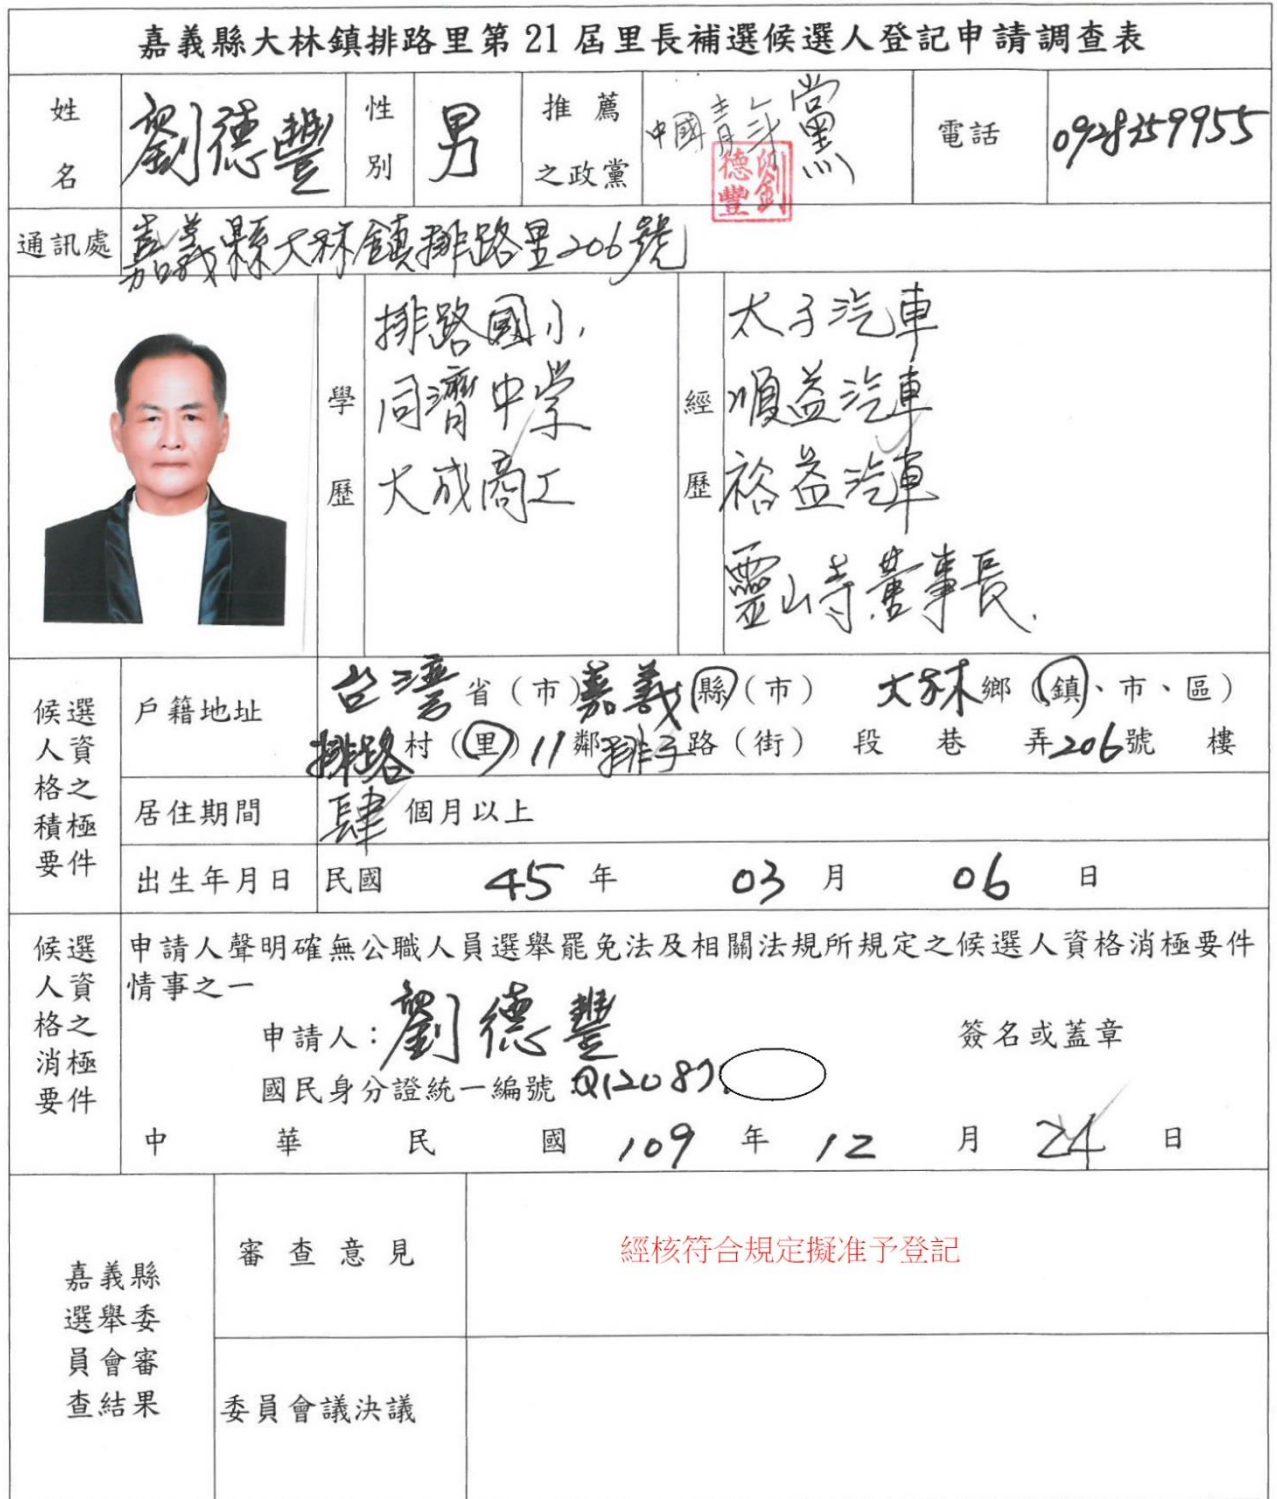 嘉義縣大林鎮排路里第21屆里長補選候選人登記申請調查表
姓名 劉德豐 性別 男 推薦之政黨 中國青年黨 電話 0928259955
劉德豐
通訊處 嘉義縣大林鎮排路里206號
學歷
排路國小
同濟中学
大成商工
經歷
太子汽車
順益汽車
裕益汽車
靈山寺董事長.
候選人資格之積極要件
戶籍地址 台灣省（市）嘉義縣（市） 大林鄉（鎮、市、區）
排路村（里）11鄰排子路（街） 段 巷 弄206號 樓
居住期間 肆個月以上
出生年月日 民國 45 年 03 月 06 日
候選人資格之消極要件
申請人聲明確無公職人員選舉罷免法及相關法規所規定之候選人資格消極要件
情事之一
申請人：劉德豐 簽名或蓋章
國民身分證統一編號 Q12087
中華民國 109 年 12 月 24 日
嘉義縣選舉委員會審查結果
審查意見 經核符合規定擬准予登記
委員會議決議